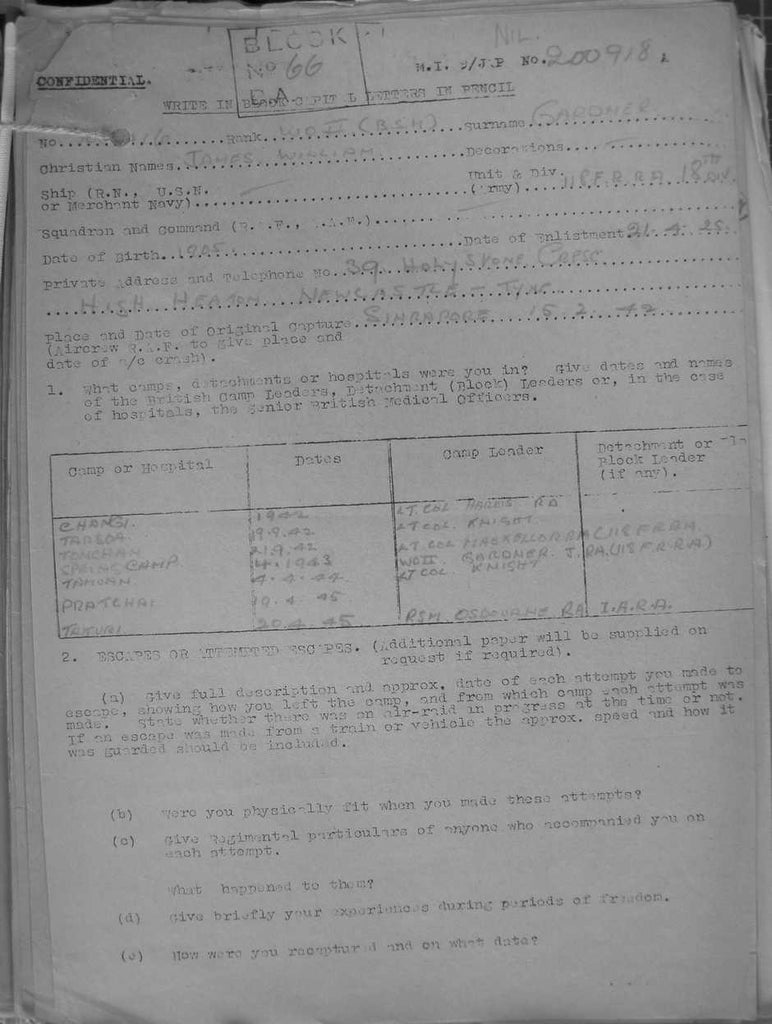 BLOCK
Nº 66
NIL.
CONFIDENTIAL.
M.I. 9/JAP No. 200918
WRITE IN BLOCK CAPITAL LETTERS IN PENCIL
No. Rank. WO II (BSM) Surname GARDNER
Christian Names. JAMES WILLIAM Decorations.
Ship (R.N., U.S.N. Unit & Div.
or Merchant Navy) (Army) 118 F.R. RA. 18TH DIV.
Squadron and Command (R.A.F., A.A.F.)
Date of Birth. 1905 Date of Enlistment 21.4.25.
Private Address and Telephone No. 39 HOLYSTONE CRESC
HIGH HEATON NEWCASTLE - TYNE
Place and Date of Original Capture. SINGAPORE 15.2.42
(Aircrew R.A.F. to give place and
date of a/c crash).
1. What camps, detachments or hospitals were you in? Give dates and names
of the British Camp Leaders, Detachment (Block) Leaders or, in the case
of hospitals, the Senior British Medical Officers.
Camp or Hospital Dates Camp Leader Detachment or
Block Leader
(if any).
CHANGI. 1942 LT. COL HARRIS RA
TARSOA 19.9.42 LT COL. KNIGHT
TONCHAN 21.9.42 LT. COL MACKELLOR RA (118 F.R. RA.
SPRING CAMP 4.1943 WO II GARDNER J. RA. (118 F.R. RA)
TAMUAN 4.4.44 LT COL. KNIGHT
PRATCHAI 9.4.45
TAKURI 20.4.45 RSM OSBOURNE RA I.A.R.A.
2. ESCAPES OR ATTEMPTED ESCAPES. (Additional paper will be supplied on
request if required).
(a) Give full description and approx. date of each attempt you made to
escape, showing how you left the camp, and from which camp each attempt was
made. State whether there was an air-raid in progress at the time or not.
If an escape was made from a train or vehicle the approx. speed and how it
was guarded should be included.
(b) Were you physically fit when you made these attempts?
(c) Give Regimental particulars of anyone who accompanied you on
each attempt.
What happened to them?
(d) Give briefly your experiences during periods of freedom.
(e) How were you recaptured and on what date?